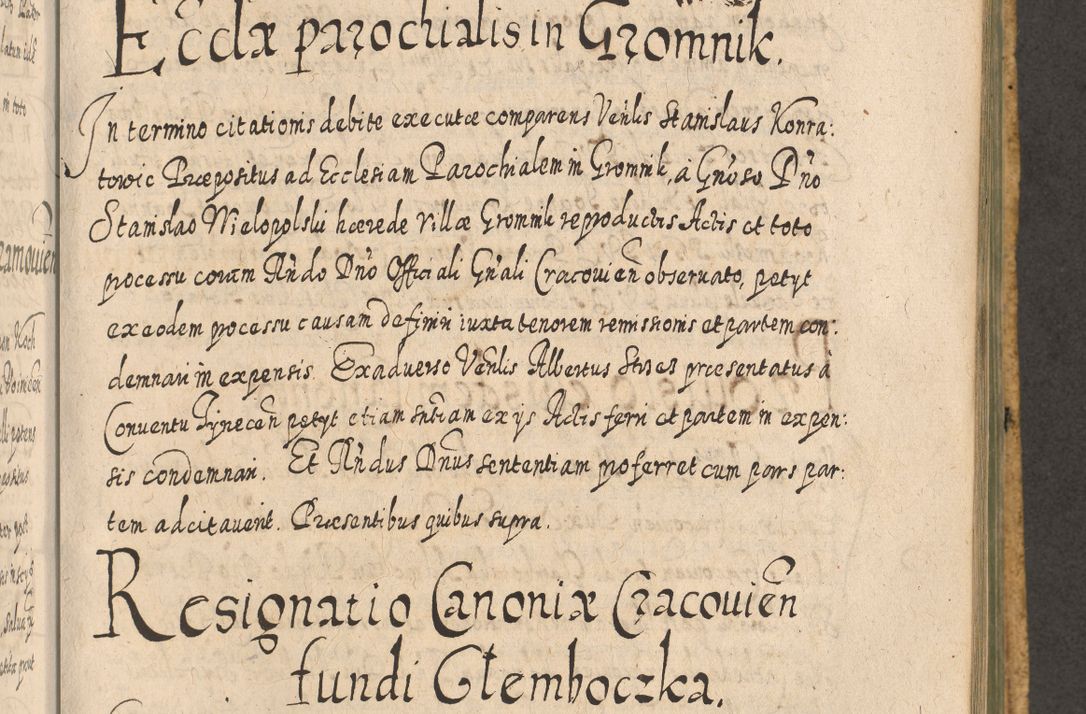 Ecclæ parochialis in Gromnik.
In termino citationis debite executæ comparens Venlis Stanislaus Konra:
towic Præpositus ad Ecclesiam Parochialem in Gromnik, à Gnoso Dno
Stanislao Wielopolski hærede villæ Gromnik reproductis Actis et toto
processu coram Rndo Dno Officiali Gnali Cracovien observato, petyt
ex eodem processu causam definiri iuxta tenorem remissionis et partem con:
demnari in expensis. Exadverso Venlis Albertus præsentatus à
Conventu Tynecen petyt etiam sntiam ex ijs Actis ferri et partem in expen:
sis condemnari. Et Rndus Dnus sententiam proferret cum pars par:
tem adcitavent. Præsentibus quibus supra.
Resignatio Canoniæ Cracouien
fundi Glemboczka.